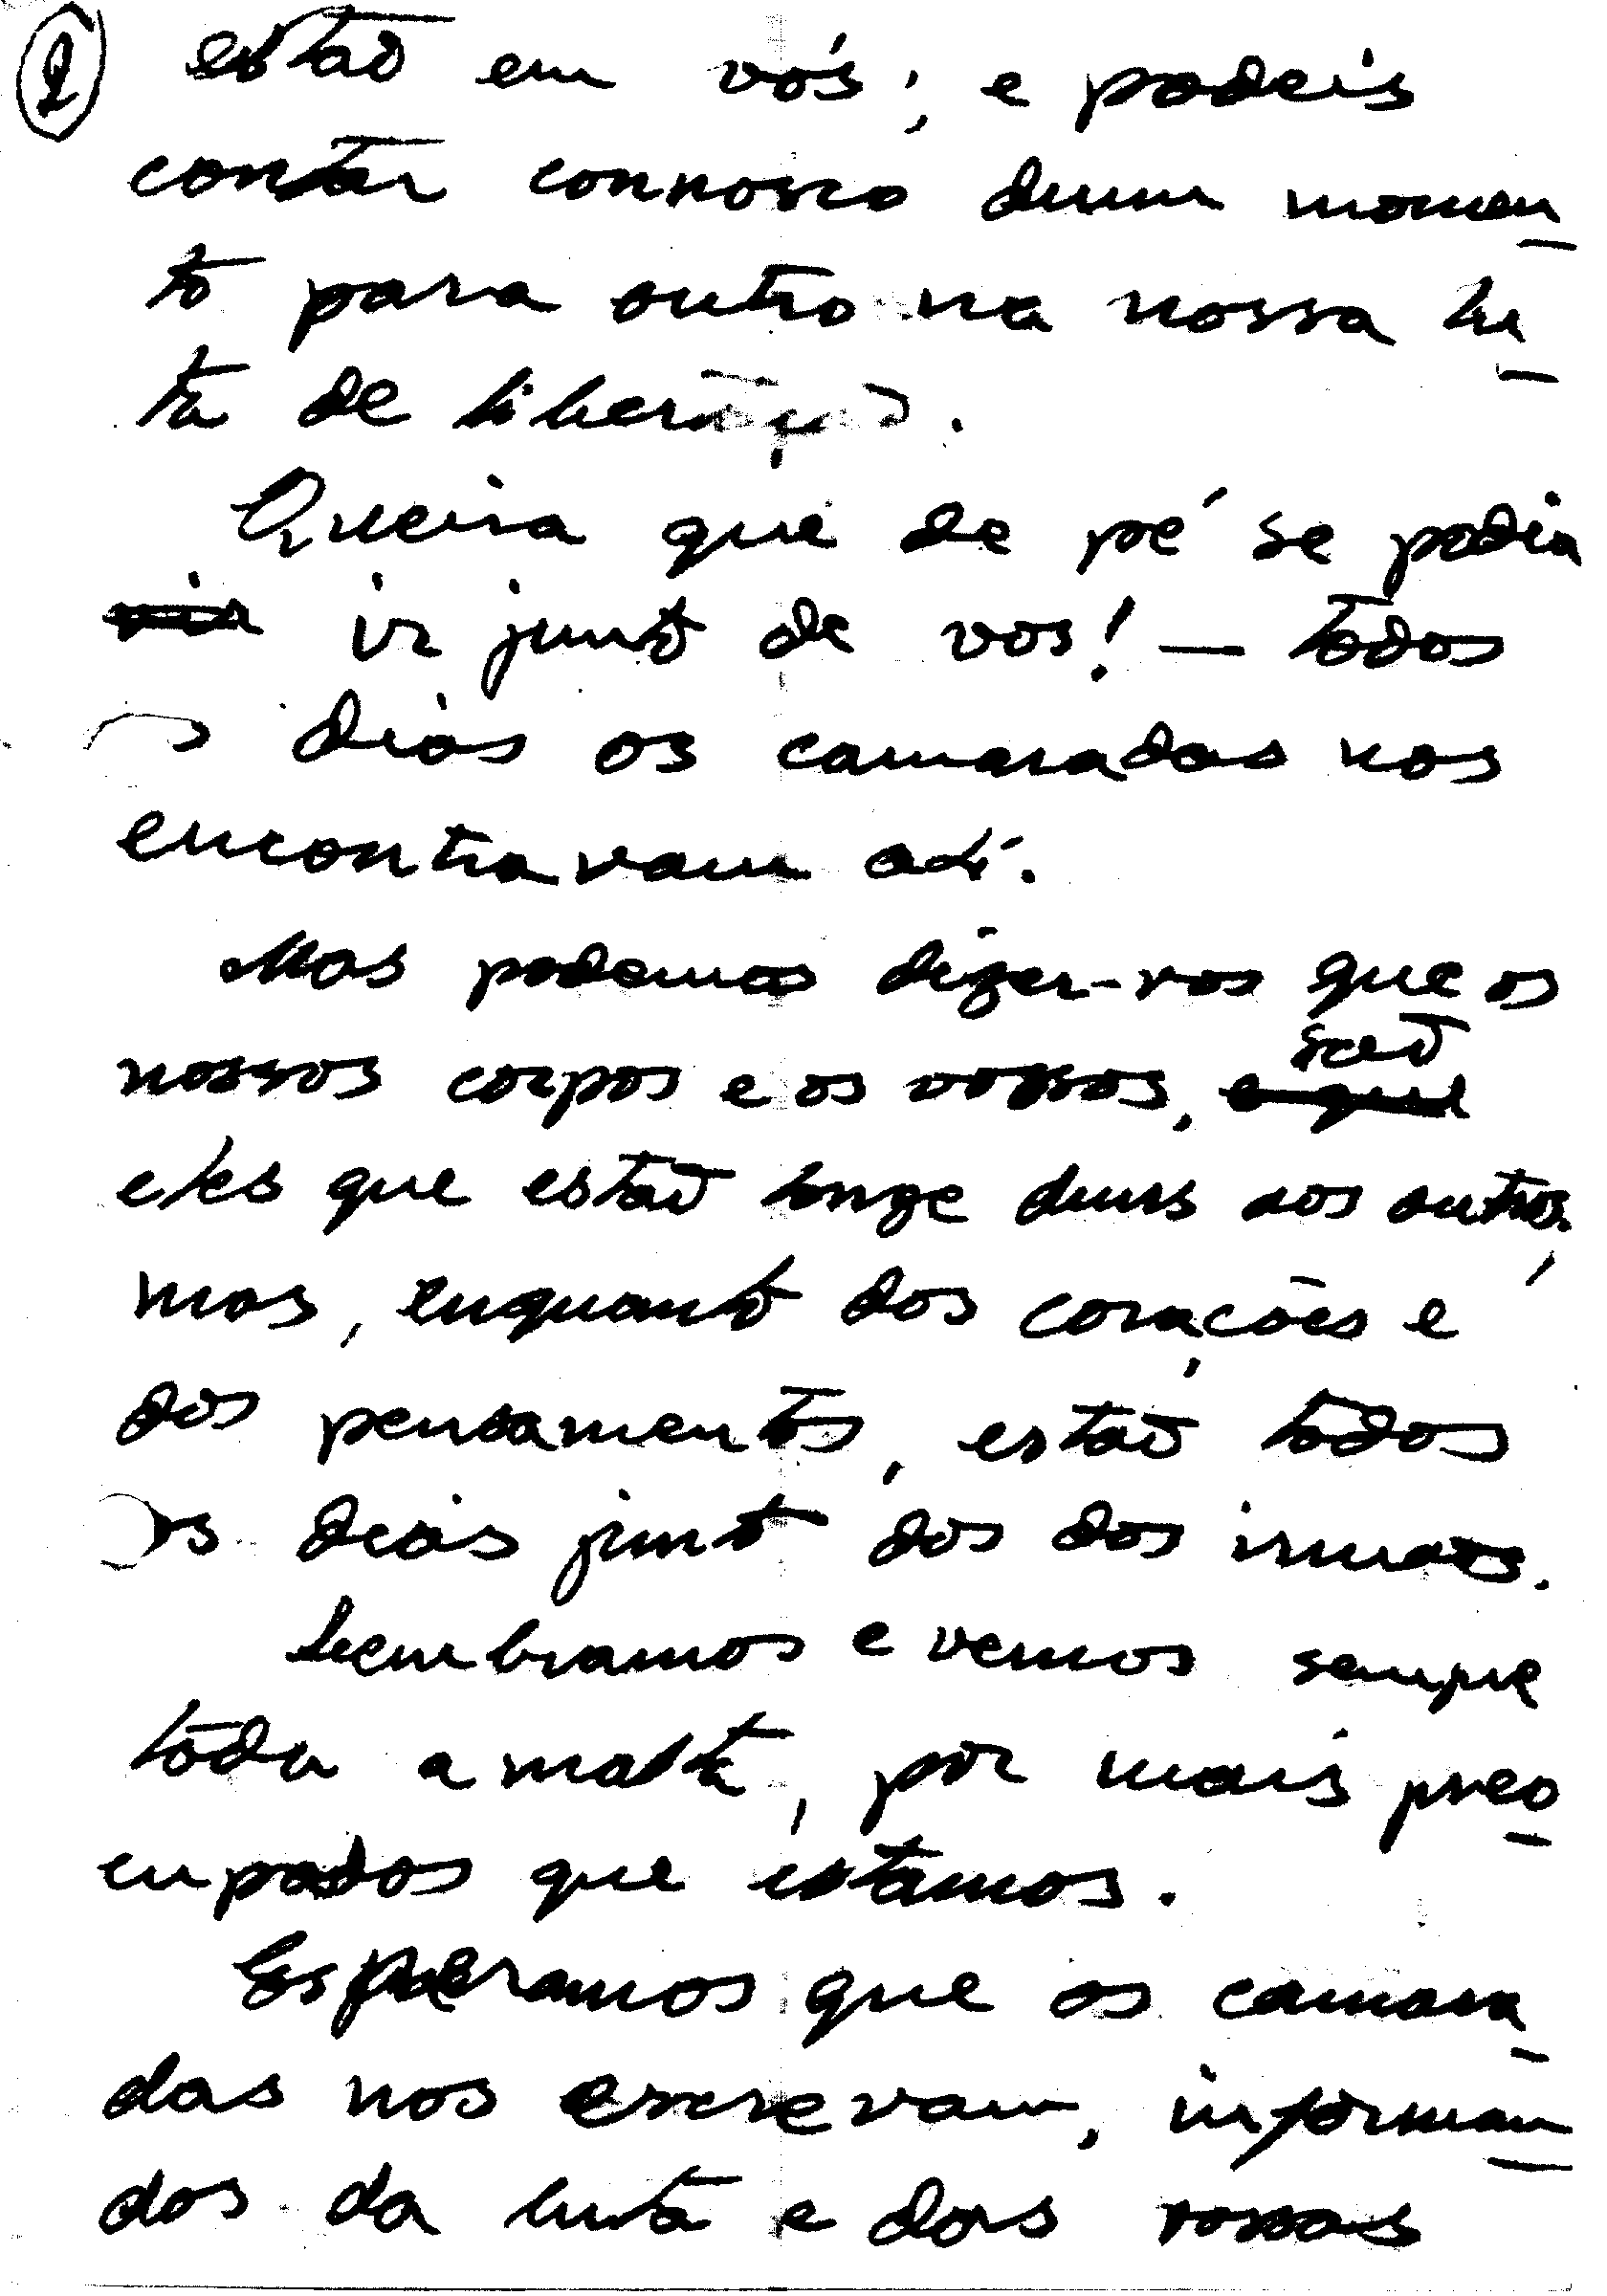 2 estão em vós; e podeis
contar connosco dum momen
to para outro na nossa lu
ta de libertação.
Queira que de pé se podia
ir junto de vos! — todos
os dias os camaradas nos
encontravam ali.
Mas podemos dizer-vos que os
nossos corpos e os vossos, são
eles que estão longe duns aos outros,
mas, enquanto dos corações e
dos pensamentos, estão todos
os dias junto dos dos irmãos.
Lembramos e vemos sempre
toda a malta, por mais preo
cupados que estamos.
Esperamos que os camara
das nos escrevam, informan
dos da luta e das vossas